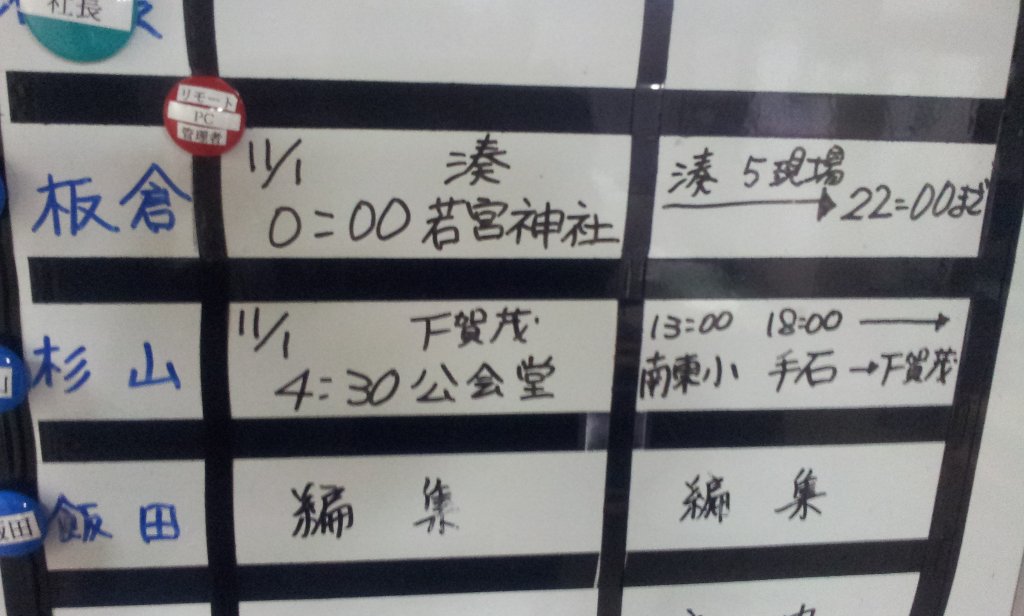 社長
リモート
PC
管理者
板倉
11/1 湊
0:00 若宮神社
湊 5現場
→ 22:00まで
杉山
11/1 下賀茂
4:30 公会堂
13:00 18:00 →
南東小 手石→下賀茂
飯田
編集
編集
飯田